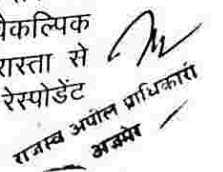 वैकल्पिक
रास्ता से
रेस्पोडेंट
राजस्व अपील प्राधिकारी
अजमेर